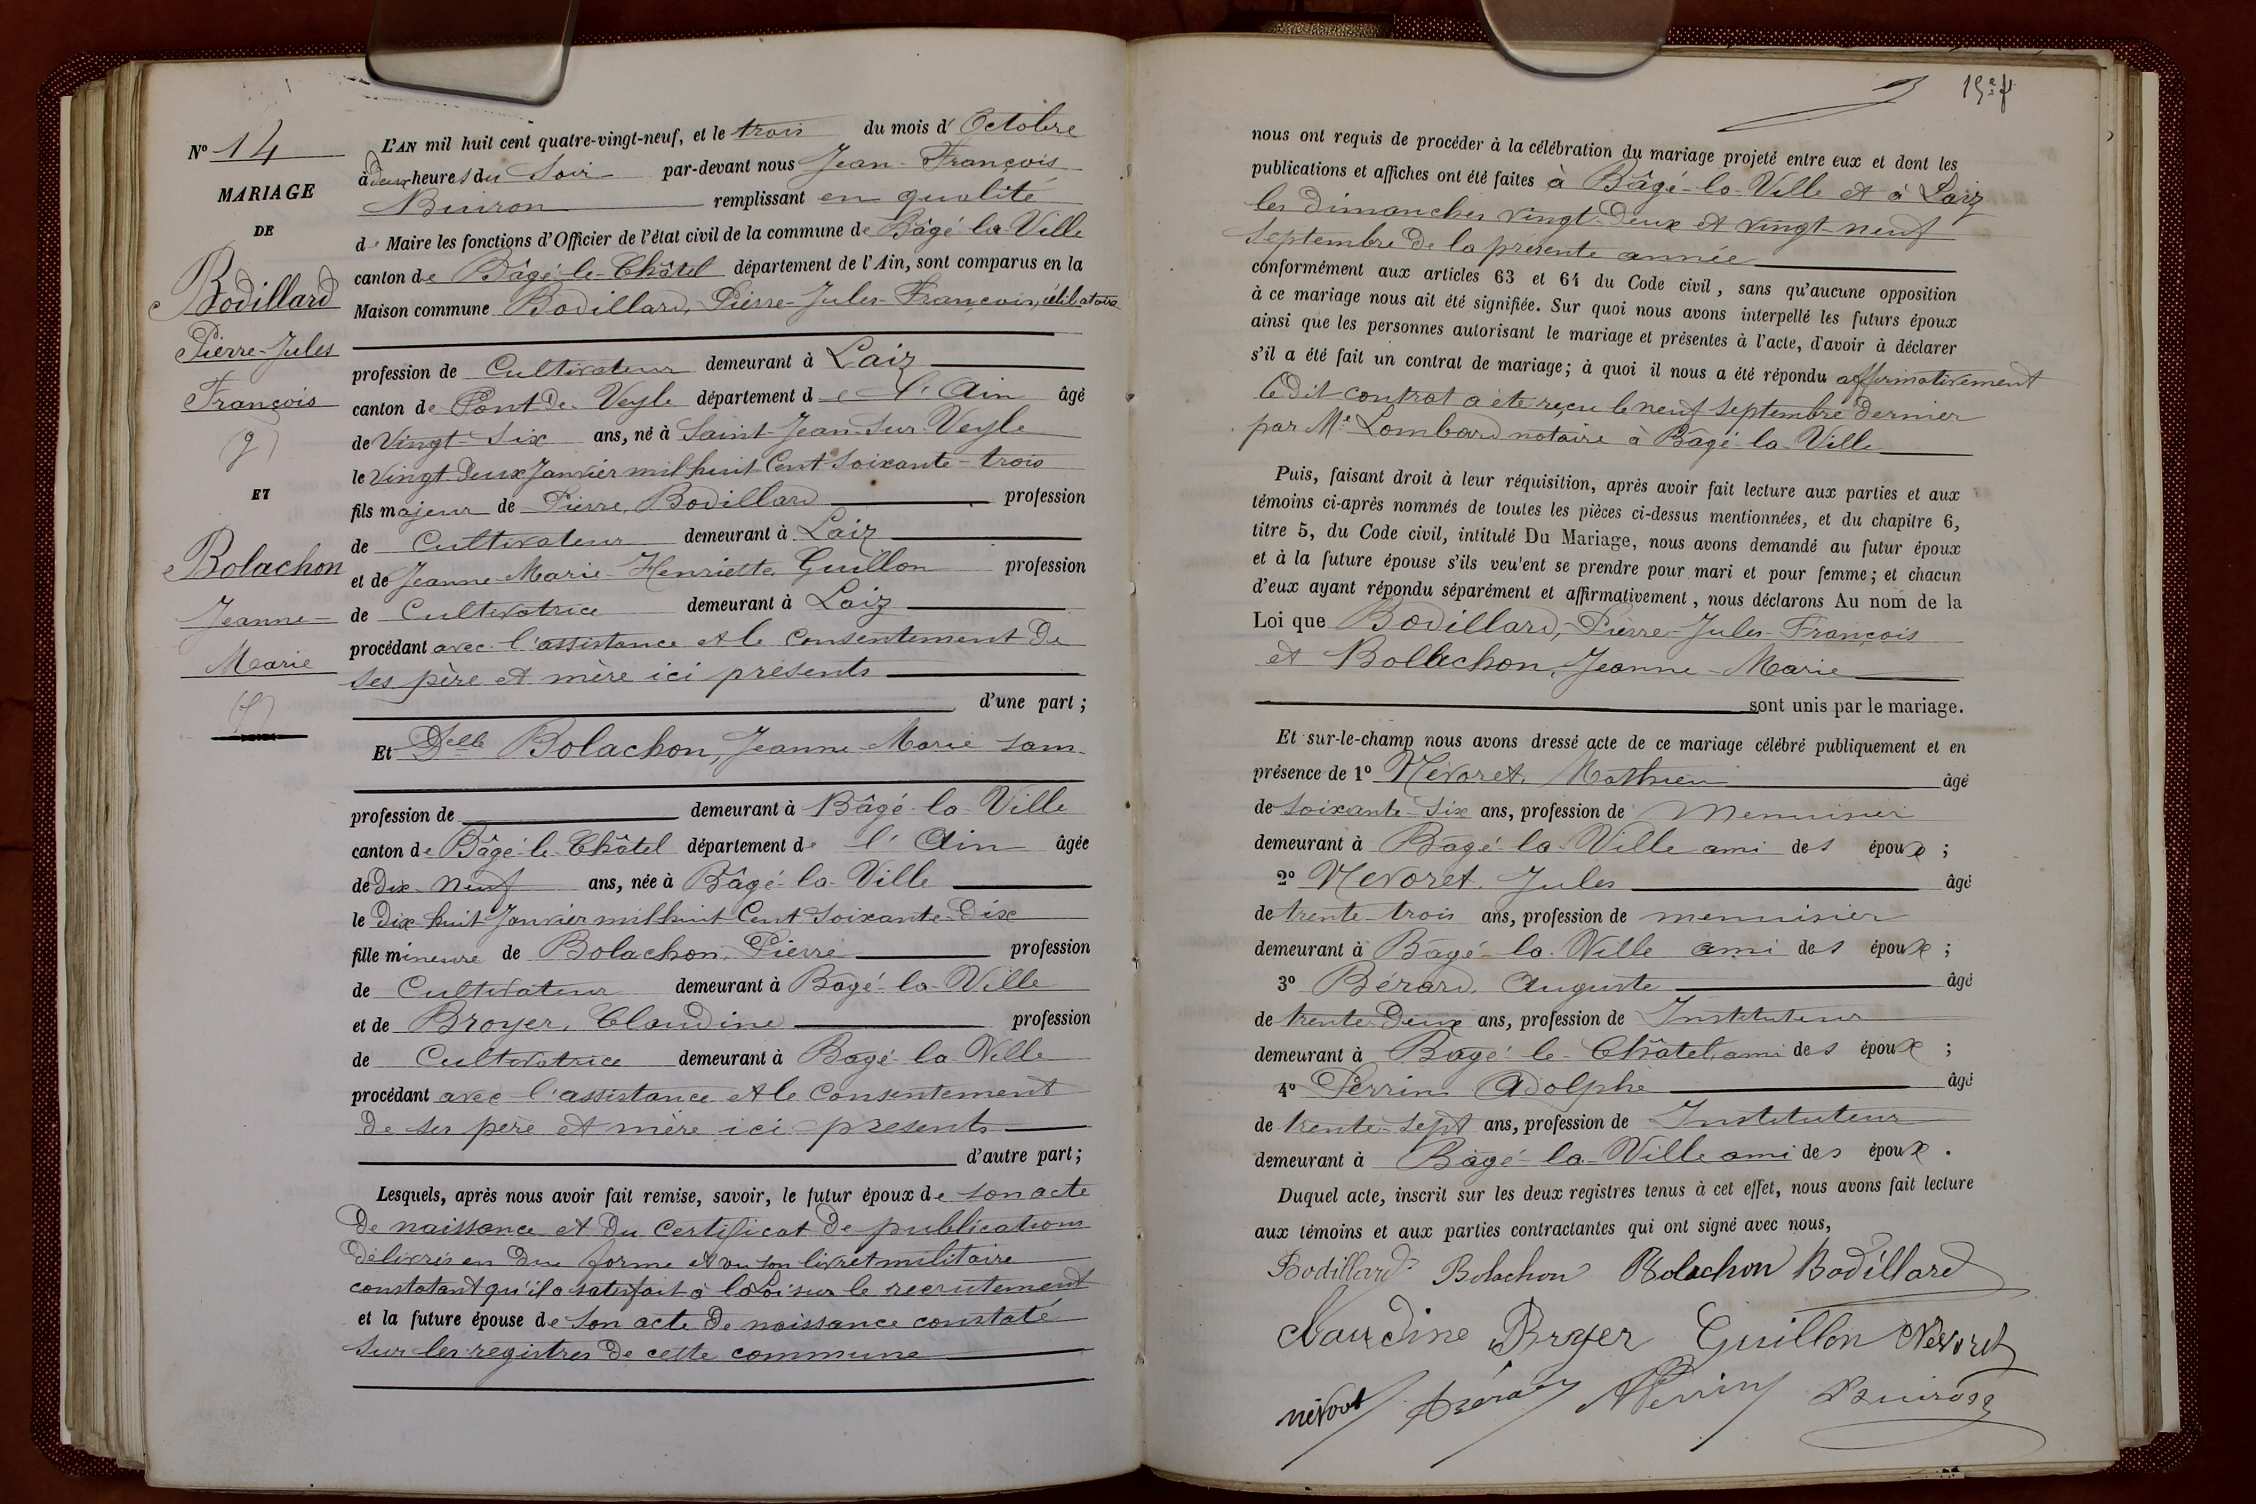 N° 14
MARIAGE
DE
Bodillard
Pierre-Jules
François
ET
Bolachon
Jeanne-
Marie
L'AN mil huit cent quatre-vingt-neuf, et le trois du mois d' Octobre
à deux heures du Soir par-devant nous Jean-François
Buiron remplissant en qualité
de Maire les fonctions d'Officier de l'état civil de la commune de Bâgé-la-Ville
canton de Bâgé-le-Châtel département de l'Ain, sont comparus en la
Maison commune Bodillard, Pierre-Jules-François, célibataire
profession de Cultivateur demeurant à Laiz
canton de Pont-de-Veyle département de l'Ain âgé
de Vingt-Six ans, né à Saint-Jean-sur-Veyle
le Vingt-deux Janvier mil huit Cent soixante-trois
fils majeur de Pierre Bodillard profession
de Cultivateur demeurant à Laiz
et de Jeanne-Marie-Henriette Guillon profession
de Cultivatrice demeurant à Laiz
procédant avec l'assistance et le consentement de
ses père et mère ici présents
d'une part ;
Et Delle Bolachon, Jeanne-Marie sans
profession de demeurant à Bâgé-la-Ville
canton de Bâgé-le-Châtel département de l'Ain âgée
de dix-neuf ans, née à Bâgé-la-Ville
le Dix-huit Janvier mil huit Cent Soixante-Dix
fille mineure de Bolachon, Pierre profession
de Cultivateur demeurant à Bâgé-la-Ville
et de Broyer, Claudine profession
de Cultivatrice demeurant à Bâgé-la-Ville
procédant avec l'assistance et le consentement
de ses père et mère ici présents
d'autre part ;
Lesquels, après nous avoir fait remise, savoir, le futur époux de son acte
de naissance et du certificat de publications
délivrés en due forme et vu son livret militaire
constatant qu'il a satisfait à la Loi sur le recrutement
et la future épouse de son acte de naissance constaté
sur les registres de cette commune
nous ont requis de procéder à la célébration du mariage projeté entre eux et dont les
publications et affiches ont été faites à Bâgé-la-Ville et à Laiz
les dimanches vingt-deux et vingt-neuf
septembre de la présente année
conformément aux articles 63 et 64 du Code civil, sans qu'aucune opposition
à ce mariage nous ait été signifiée. Sur quoi nous avons interpellé les futurs époux
ainsi que les personnes autorisant le mariage et présentes à l'acte, d'avoir à déclarer
s'il a été fait un contrat de mariage ; à quoi il nous a été répondu affirmativement
ledit contrat a été reçu le neuf septembre dernier
par Me Lombard notaire à Bâgé-la-Ville
Puis, faisant droit à leur réquisition, après avoir fait lecture aux parties et aux
témoins ci-après nommés de toutes les pièces ci-dessus mentionnées, et du chapitre 6,
titre 5, du Code civil, intitulé Du Mariage, nous avons demandé au futur époux
et à la future épouse s'ils veu'ent se prendre pour mari et pour femme ; et chacun
d'eux ayant répondu séparément et affirmativement, nous déclarons Au nom de la
Loi que Bodillard, Pierre-Jules-François
et Bollachon, Jeanne-Marie
sont unis par le mariage.
Et sur-le-champ nous avons dressé acte de ce mariage célébré publiquement et en
présence de 1° Névoret, Mathieu âgé
de soixante-six ans, profession de Menuisier
demeurant à Bâgé-la-Ville ami des époux ;
2° Névoret, Jules âgé
de trente-trois ans, profession de menuisier
demeurant à Bâgé-la-Ville ami des époux ;
3° Bérard, Auguste âgé
de trente-Deux ans, profession de Instituteur
demeurant à Bâgé-le-Châtel ami des époux ;
4° Perrin Adolphe âgé
de trente-sept ans, profession de Instituteur
demeurant à Bâgé-la-Ville ami des époux.
Duquel acte, inscrit sur les deux registres tenus à cet effet, nous avons fait lecture
aux témoins et aux parties contractantes qui ont signé avec nous,
Bodillard Bolachon Bolachon Bodillard
Claudine Broyer Guillon Névoret
névoret Bérard Perrin Buiron